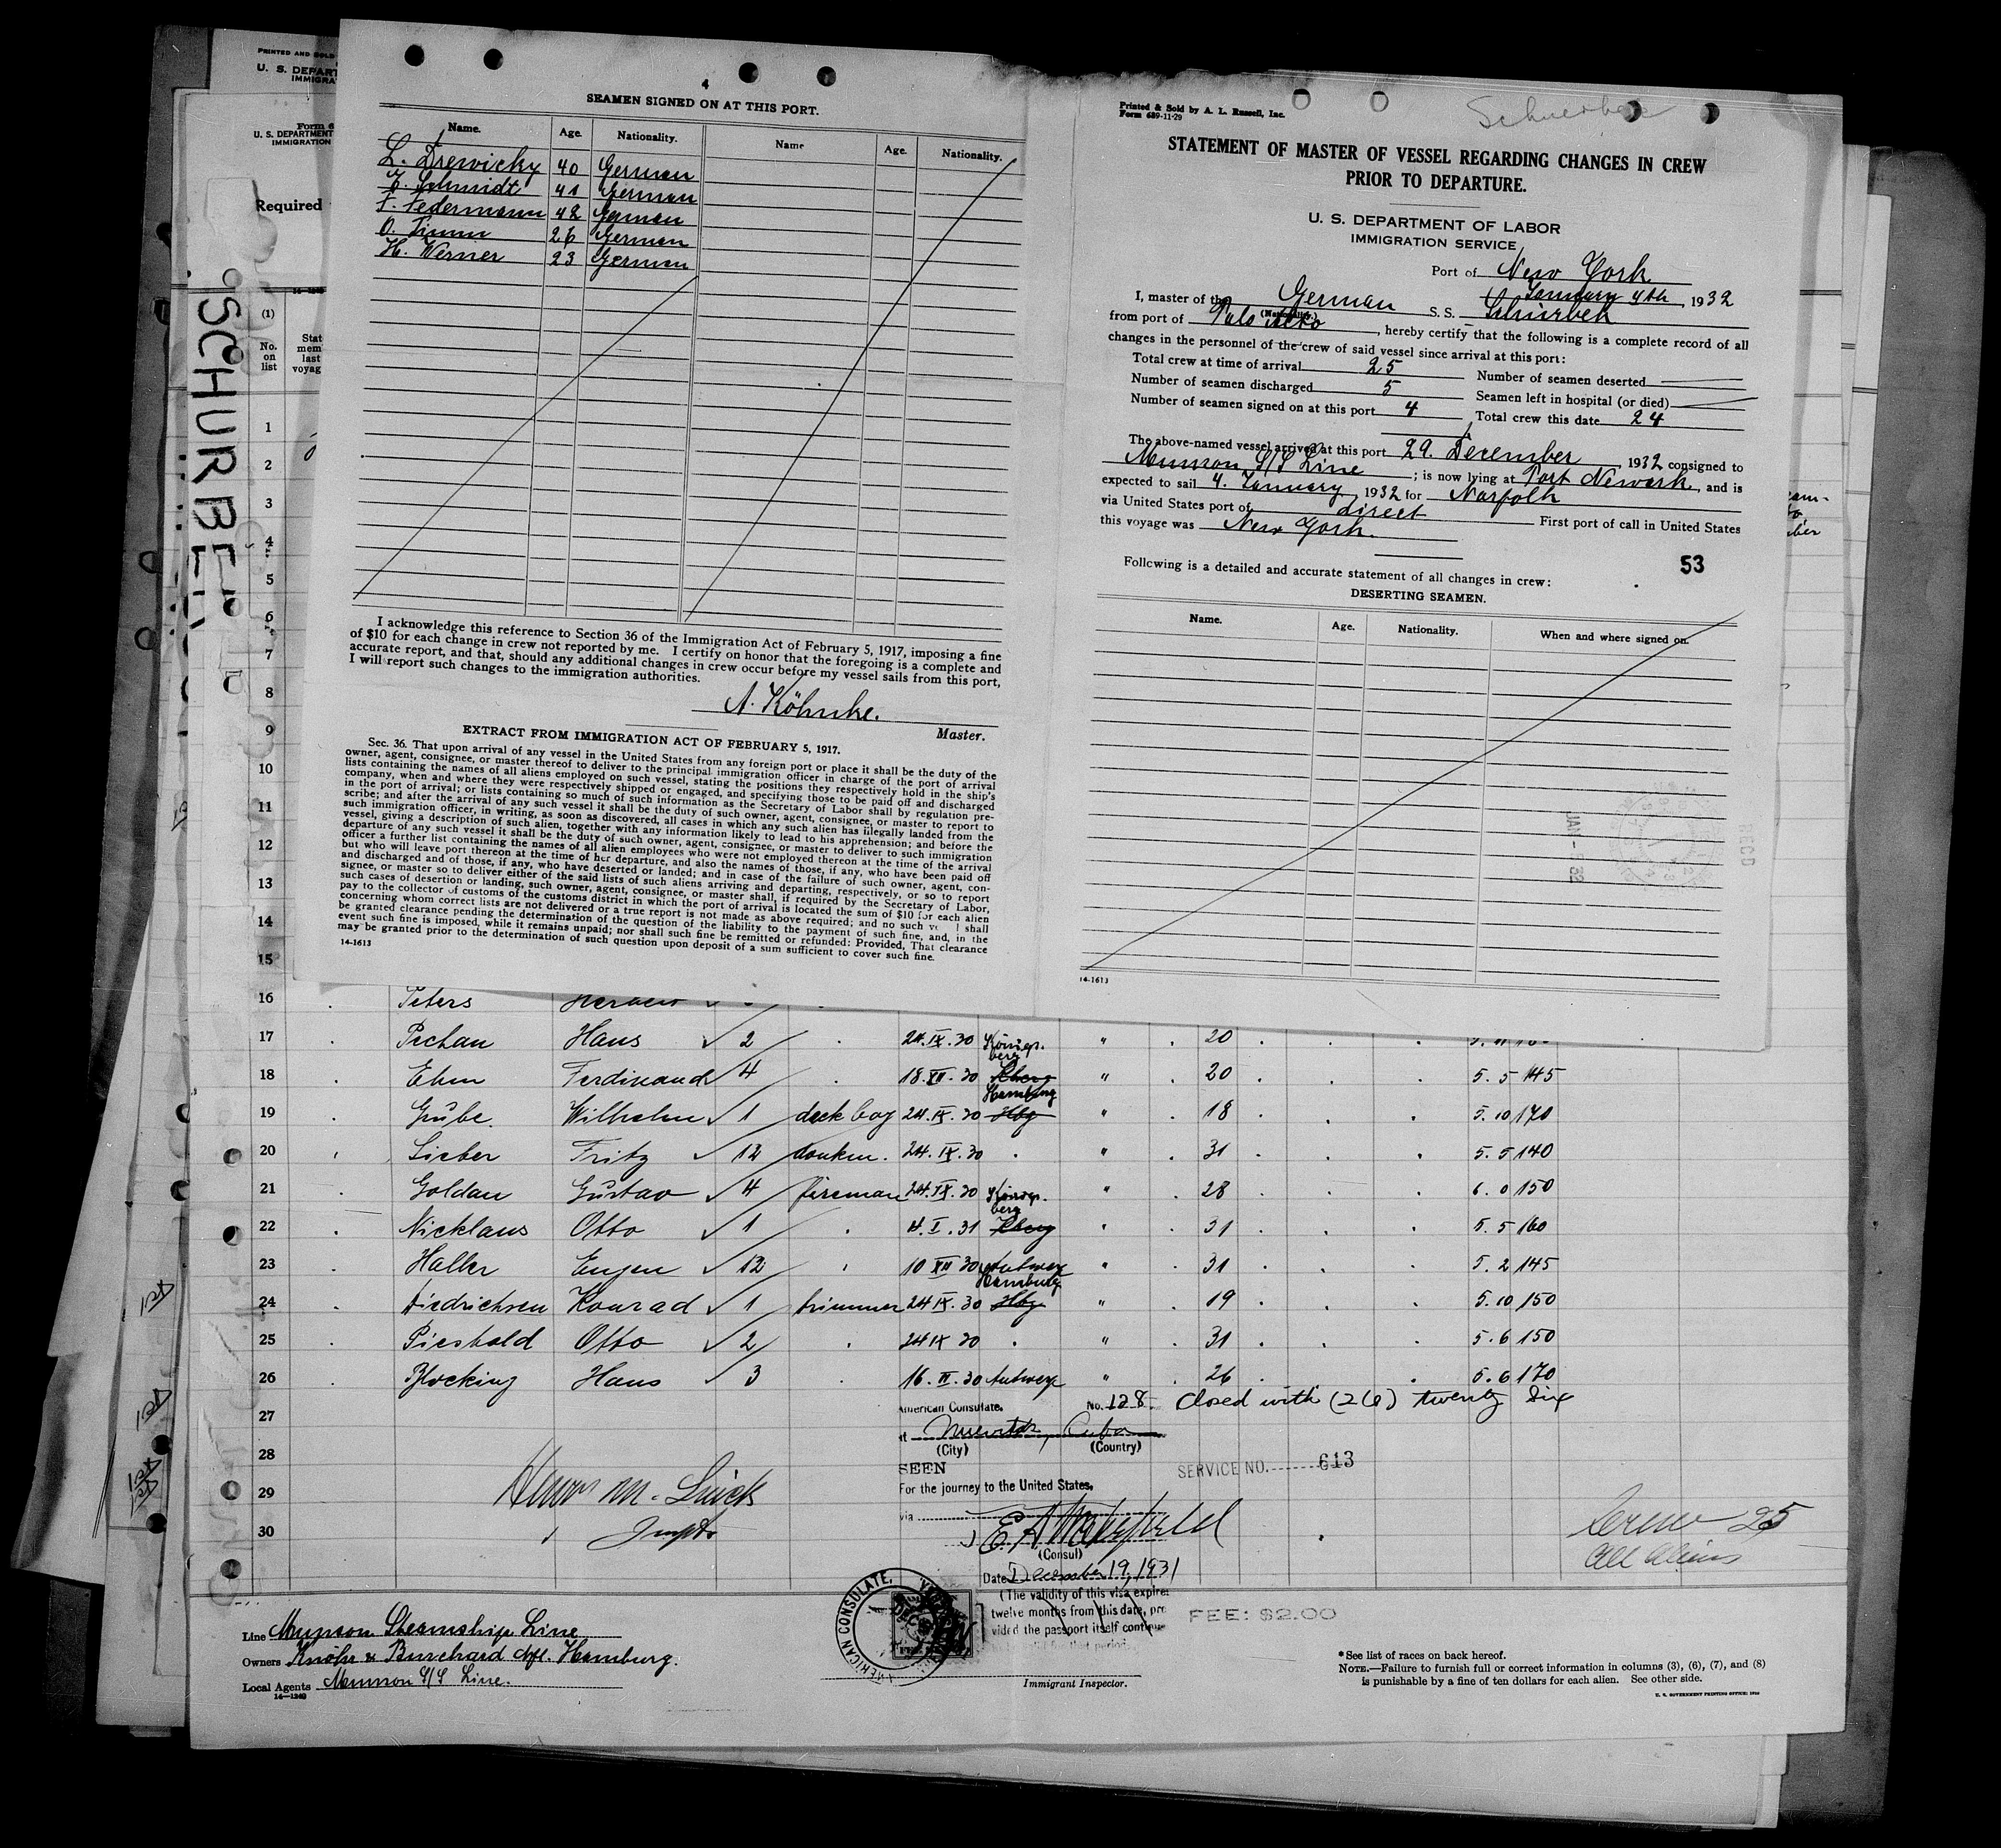 PRINTED AND SOLD
U. S. DEPART
IMMIGRA
Form 6
U. S. DEPARTMENT
IMMIGRATION
Required
SCHURBEK
(1)
No.
on
list
Stat
mem
last
voyag
1
2
3
4
5
6
7
8
9
10
11
12
13
14
15
4
SEAMEN SIGNED ON AT THIS PORT.
Name. Age. Nationality. Name Age. Nationality.
L. Drewicky 40 German
E. Schmidt 41 German
F. Federmann 42 German
O. Timm 26 German
H. Werner 23 German
I acknowledge this reference to Section 36 of the Immigration Act of February 5, 1917, imposing a fine
of $10 for each change in crew not reported by me. I certify on honor that the foregoing is a complete and
accurate report, and that, should any additional changes in crew occur before my vessel sails from this port,
I will report such changes to the immigration authorities.
A. Köhnke.
Master.
EXTRACT FROM IMMIGRATION ACT OF FEBRUARY 5, 1917.
Sec. 36. That upon arrival of any vessel in the United States from any foreign port or place it shall be the duty of the
owner, agent, consignee, or master thereof to deliver to the principal immigration officer in charge of the port of arrival
lists containing the names of all aliens employed on such vessel, stating the positions they respectively hold in the ship's
company, when and where they were respectively shipped or engaged, and specifying those to be paid off and discharged
in the port of arrival; or lists containing so much of such information as the Secretary of Labor shall by regulation pre-
scribe; and after the arrival of any such vessel it shall be the duty of such owner, agent, consignee, or master to report to
such immigration officer, in writing, as soon as discovered, all cases in which any such alien has illegally landed from the
vessel, giving a description of such alien, together with any information likely to lead to his apprehension; and before the
departure of any such vessel it shall be the duty of such owner, agent, consignee, or master to deliver to such immigration
officer a further list containing the names of all alien employees who were not employed thereon at the time of the arrival
but who will leave port thereon at the time of her departure, and also the names of those, if any, who have been paid off
and discharged and of those, if any, who have deserted or landed; and in case of the failure of such owner, agent, con-
signee, or master so to deliver either of the said lists of such aliens arriving and departing, respectively, or so to report
such cases of desertion or landing, such owner, agent, consignee, or master shall, if required by the Secretary of Labor,
pay to the collector of customs of the customs district in which the port of arrival is located the sum of $10 for each alien
concerning whom correct lists are not delivered or a true report is not made as above required; and no such ve l shall
be granted clearance pending the determination of the question of the liability to the payment of such fine, and, in the
event such fine is imposed, while it remains unpaid; nor shall such fine be remitted or refunded: Provided, That clearance
may be granted prior to the determination of such question upon deposit of a sum sufficient to cover such fine.
14-1613
Printed & Sold by A. L. Russell, Inc.
Form 689-11-29
STATEMENT OF MASTER OF VESSEL REGARDING CHANGES IN CREW
PRIOR TO DEPARTURE.
U. S. DEPARTMENT OF LABOR
IMMIGRATION SERVICE
Port of New York
January 4th, 1932
I, master of the German S. S. Schürbek
(Nationality)
from port of Palo Alto, hereby certify that the following is a complete record of all
changes in the personnel of the crew of said vessel since arrival at this port:
Total crew at time of arrival 25 Number of seamen deserted
Number of seamen discharged 5 Seamen left in hospital (or died)
Number of seamen signed on at this port 4 Total crew this date 24
The above-named vessel arrived at this port 29. December 1932 consigned to
Munson S/S Line; is now lying at Port Newark, and is
expected to sail 4. January, 1932 for Norfolk
via United States port of direct First port of call in United States
this voyage was New York.
53
Following is a detailed and accurate statement of all changes in crew:
DESERTING SEAMEN.
Name. Age. Nationality. When and where signed on.
JAN - 32
RECD
14-1613
16 Peters
17 Pechan Hans 2 24.IX.30 Königs-berg " 20
18 Ehm Ferdinand 4 18.XII.30 Kberg " 20 5.5 145
19 Grübe. Wilhelm 1 deck boy 24.IX.30 Hamburg Hbg " 18 5.10 170
20 Lieber Fritz 12 donkm. 24.IX.30 " 31 5.5 140
21 Goldau Gustav 4 fireman 24.IX.30 Königs-berg " 28 6.0 150
22 Nicklaus Otto 1 4.I.31 Kberg " 31 5.5 160
23 Haller Eugen 12 10 XII 30 Antwerp " 31 5.2 145
24 Diedrichsen Konrad 1 trimmer 24 IX.30 Hamburg Hbg " 19 5.10 150
25 Piesbold Otto 2 24 IX 30 " 31 5.6 150
26 Blocking Hans 3 16.II.30 Antwerp " 26 5.6 170
27
28
29
30
American Consulate. No. 128 Closed with (26) twenty six
at Nuevitas, Cuba
(City) (Country)
SEEN
SERVICE NO. 613
For the journey to the United States.
via
(Consul)
Date December 19, 1931
(The validity of this visa expires
twelve months from this date, pro
vided the passport itself continue
FEE: $2.00
AMERICAN CONSULATE,
Crew 25
All Aliens
Line Munson Steamship Line
Owners Knöhr & Burchard Nfl. Hamburg.
Local Agents Munson S/S Line.
14-1240
Immigrant Inspector.
*See list of races on back hereof.
NOTE.—Failure to furnish full or correct information in columns (3), (6), (7), and (8)
is punishable by a fine of ten dollars for each alien. See other side.
U. S. GOVERNMENT PRINTING OFFICE: 1930